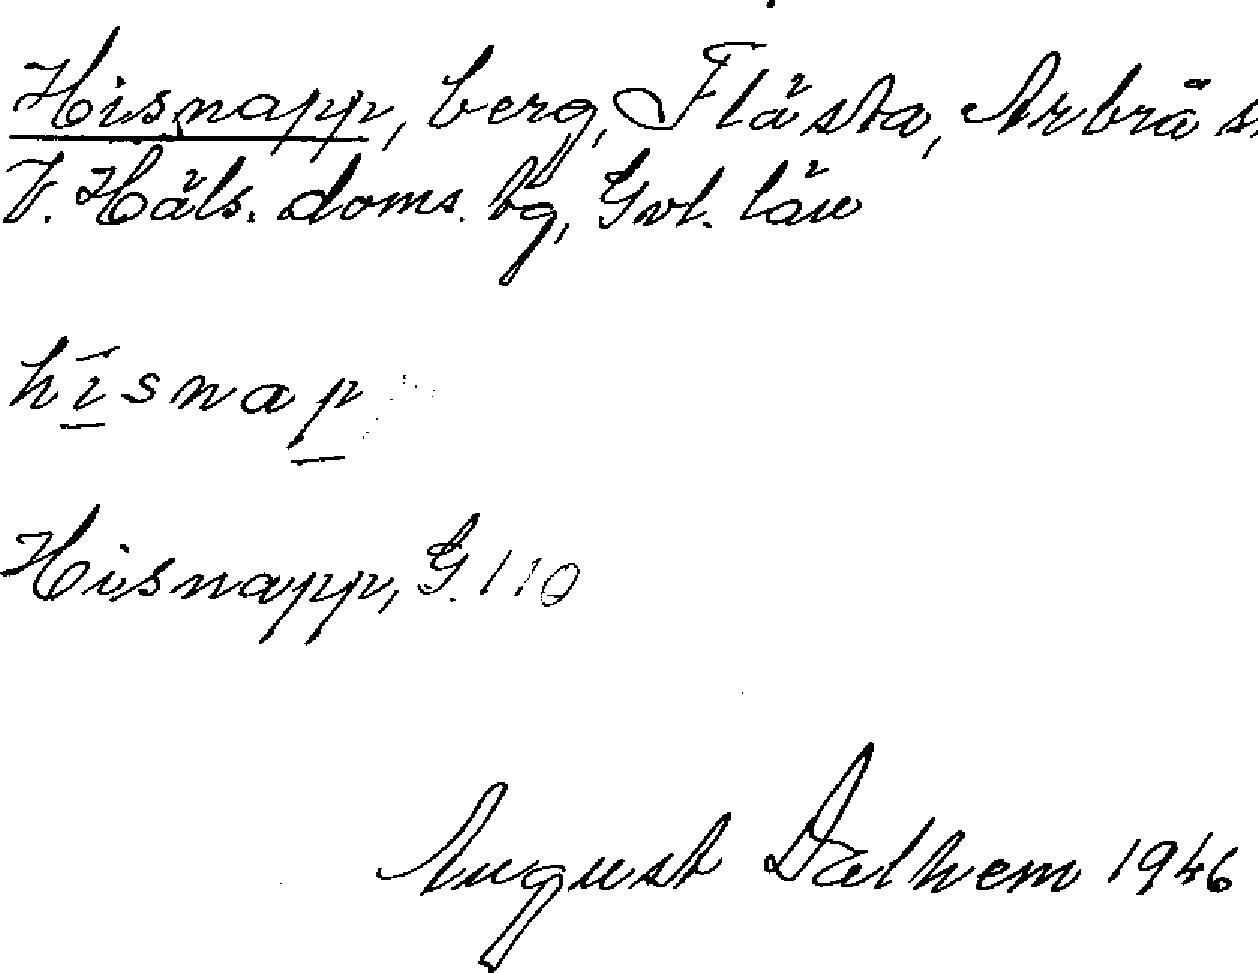 Hisnapp, berg, Flästa, Arbrå s
V. Häls. doms. bg, Gvl. län
hi̱snap̱
Hisnapp, G. 110
August Dalhem 1946